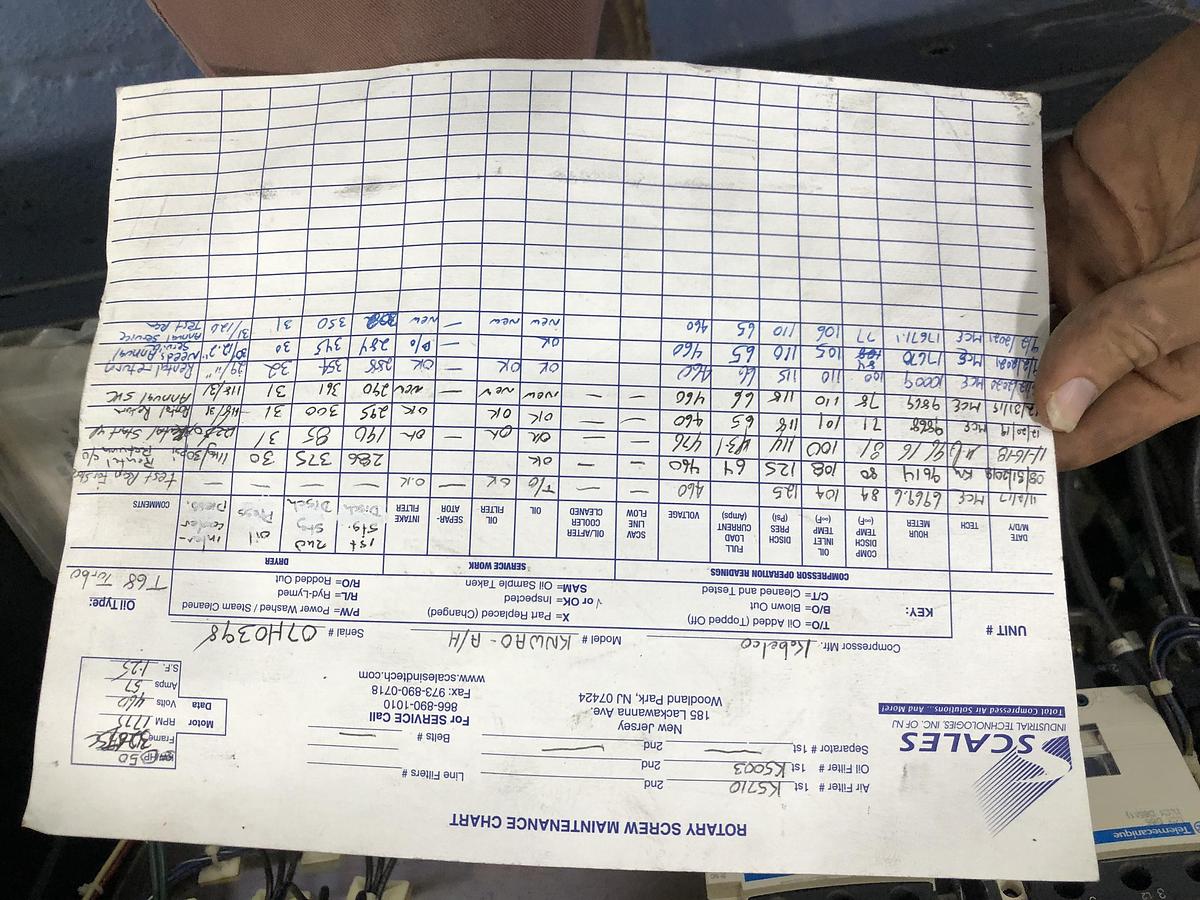 ROTARY SCREW MAINTENANCE CHART
SCALES
INDUSTRIAL TECHNOLOGIES, INC. OF NJ
Total Compressed Air Solutions... And More!
Air Filter # 1st KS710 2nd Line Filters #
Oil Filter # 1st KS003 2nd
Separator # 1st — 2nd — Belts # —
New Jersey
185 Lackawanna Ave.
Woodland Park, NJ 07424
For SERVICE Call
866-890-1010
Fax: 973-890-0718
www.scalesindtech.com
HP 50
Frame
Motor Data
RPM 1775
Volts 460
Amps 57
S.F. 1.25
UNIT #
Compressor Mfr. Kobelco Model # KNWAO-A/H Serial # 07H0398
KEY:
T/O= Oil Added (Topped Off) X= Part Replaced (Changed) P/W= Power Washed / Steam Cleaned
B/O= Blown Out √ or OK= Inspected R/L= Ryd-Lymed
C/T= Cleaned and Tested SAM= Oil Sample Taken R/O= Rodded Out
Oil Type:
T68 Turbo
COMPRESSOR OPERATION READINGS SERVICE WORK DRYER
DATE M/D/Y TECH HOUR METER COMP DISCH TEMP (∞F) OIL INLET TEMP (∞F) DISCH PRES (Psi) FULL LOAD CURRENT (Amps) VOLTAGE SCAV LINE FLOW OIL/AFTER COOLER CLEANED OIL OIL FILTER SEPAR-ATOR INTAKE FILTER 1st stg. Disch 2nd stg Disch oil Press inter-cooler press. COMMENTS
11/2/17 MCE 6969.6 84 104 125 460 — — T/O O.K — O.K — — — — test Run For
08/31/2018 KM 9614 80 108 125 64 460 OK 286 375 30 Rental Return
11-16-18 16 81 100 114 476 — — OK OK — OK 140 85 31 Rental Start up
12/20/19 MCE 9868 71 101 118 65 460 OK OK — OK 295 300 31 Rental Return
12/31/19 MCE 9869 78 110 118 66 460 new new — new 290 361 31 Annual SVC
MCE 10009 100 110 115 66 460 OK OK — OK 288 354 32 29 1/2" Rental return
MCE 17610 84 105 110 65 460 OK — B/O 284 345 30 Needs Annual Service
MCE 17611.1 77 106 110 65 460 new new — new 350 31 31/120 Annual Service Test Run
Telemecanique